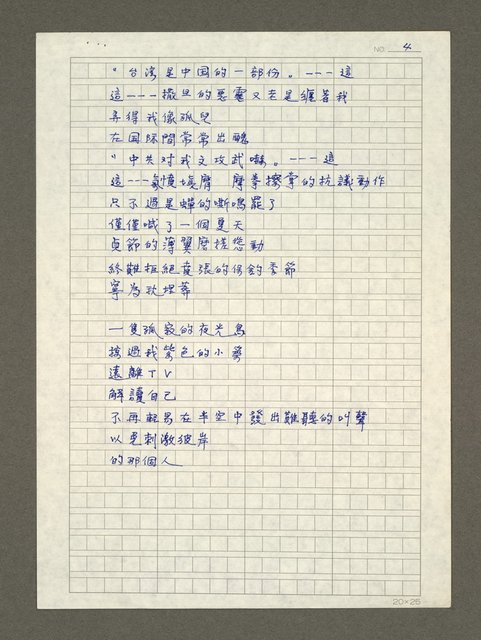 NO. 4
“台湾是中国的一部份。---這
這---撒旦的惡靈又老是纏着我
弄得我像孤兒
在国际間常常出醜
“中共对我文攻武嚇。---這
這---氣憤填膺 摩拳擦掌的抗議動作
只不過是蟬的嘶鳴罷了
僅僅喊了一個夏天
貞節的薄翼磨搓悠動
終難拒絕賁張的侷的季節
寧為秋埋葬
一隻孤寂的夜光鳥
擦過我螢色的小臉
遠離TV
解讀自己
不再輕易在半空中發出難聽的叫聲
以免刺激彼岸
的那個人
20×25